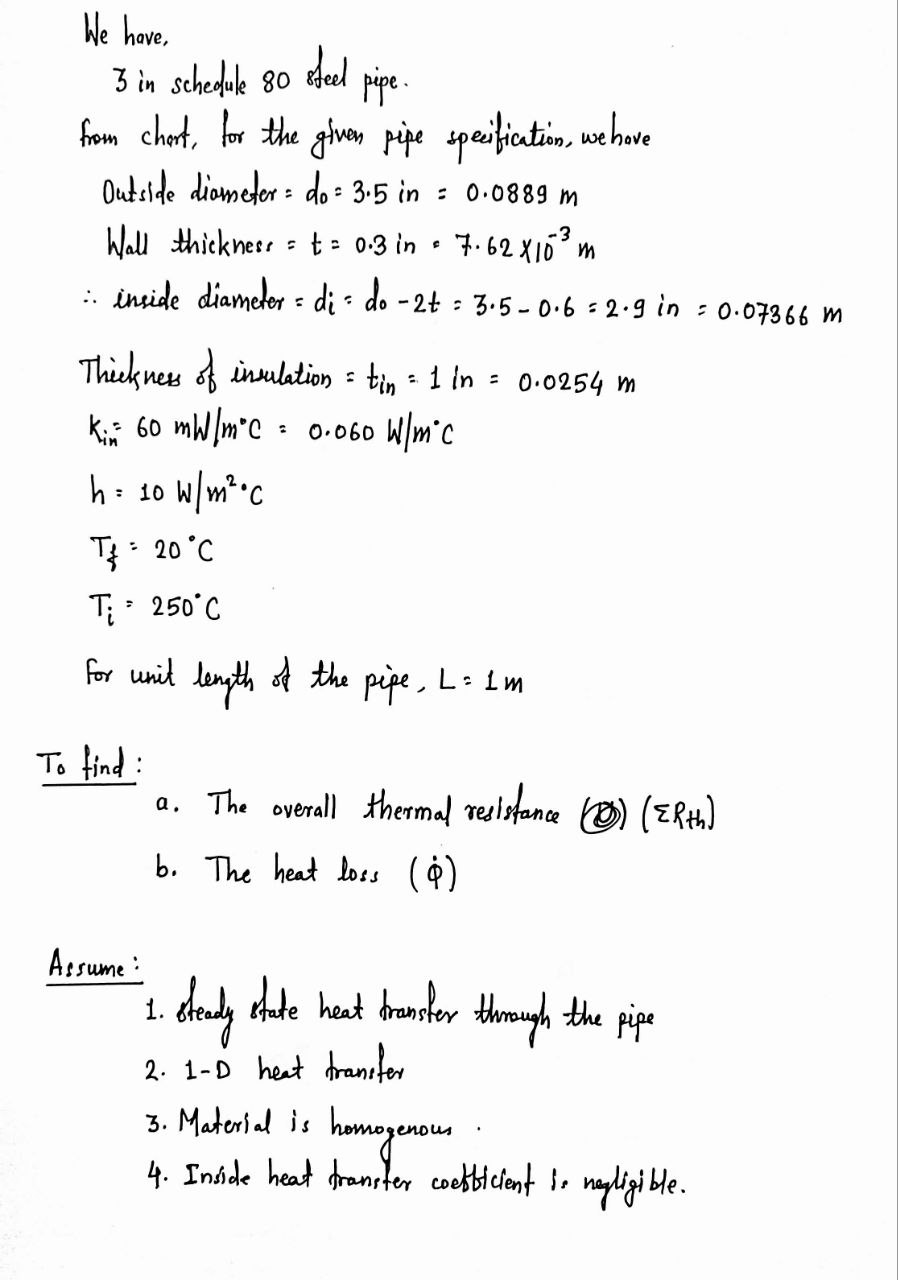 We have,
3 in schedule 80 steel pipe.
from chart, for the given pipe specification, we have
Outside diameter = do = 3.5 in = 0.0889 m
Wall thickness = t = 0.3 in = 7.62 X10⁻³ m
∴ inside diameter = di = do - 2t = 3.5 - 0.6 = 2.9 in = 0.07366 m
Thickness of insulation = tin = 1 in = 0.0254 m
Kin = 60 mW/m°C = 0.060 W/m°C
h = 10 W/m²·°C
Tf = 20°C
Ti = 250°C
for unit length of the pipe, L = 1m
To find :
a. The overall thermal resistance (ΣRth)
b. The heat loss (φ̇)
Assume :
1. Steady state heat transfer through the pipe
2. 1-D heat transfer
3. Material is homogenous.
4. Inside heat transfer coefficient is negligible.